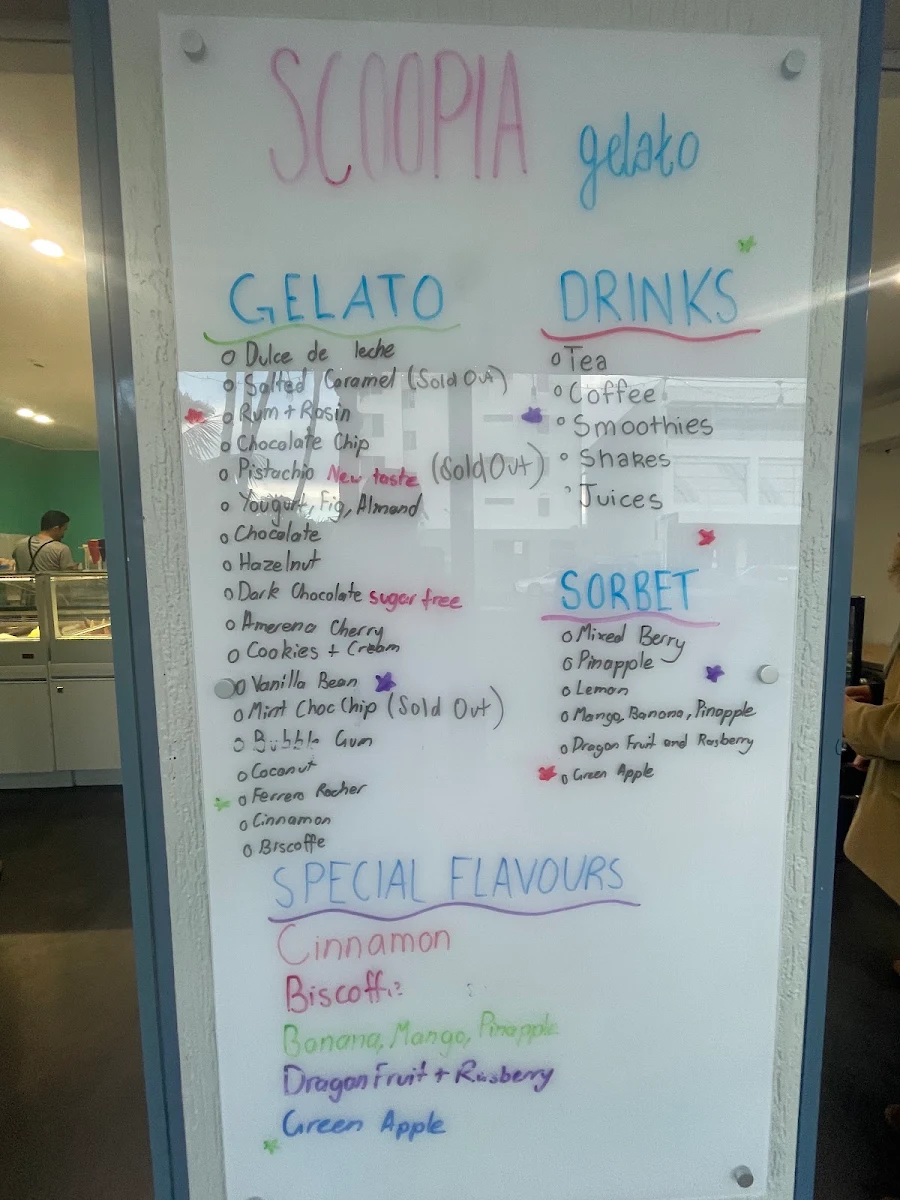 SCOOPIA gelato
GELATO
Dulce de leche
Salted Caramel (Sold Out)
Rum + Rasin
Chocolate Chip
Pistachio New taste (Sold Out)
Yougurt, Fig, Almond
Chocolate
Hazelnut
Dark Chocolate sugar free
Amerena Cherry
Cookies + Cream
Vanilla Bean
Mint Choc Chip (Sold Out)
Bubble Gum
Coconut
Ferrero Rocher
Cinnamon
Biscoffe
DRINKS
Tea
Coffee
Smoothies
Shakes
Juices
SORBET
Mixed Berry
Pinapple
Lemon
Mango, Banana, Pinapple
Dragon Fruit and Rasberry
Green Apple
SPECIAL FLAVOURS
Cinnamon
Banana, Mango, Pinapple
Dragon Fruit + Rasberry
Green Apple